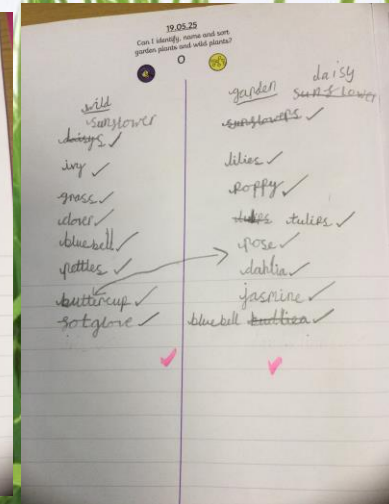 19.05.25
Can I identify, name and sort
garden plants and wild plants?
wild
sunslower
daisys
ivy
grass
clover
bluebell
nettles
buttercup
sotglove
garden daisy
sunslower
sunslowers
lilies
poppy
tulips tulips
rose
dahlia
jasmine
bluebell budliea